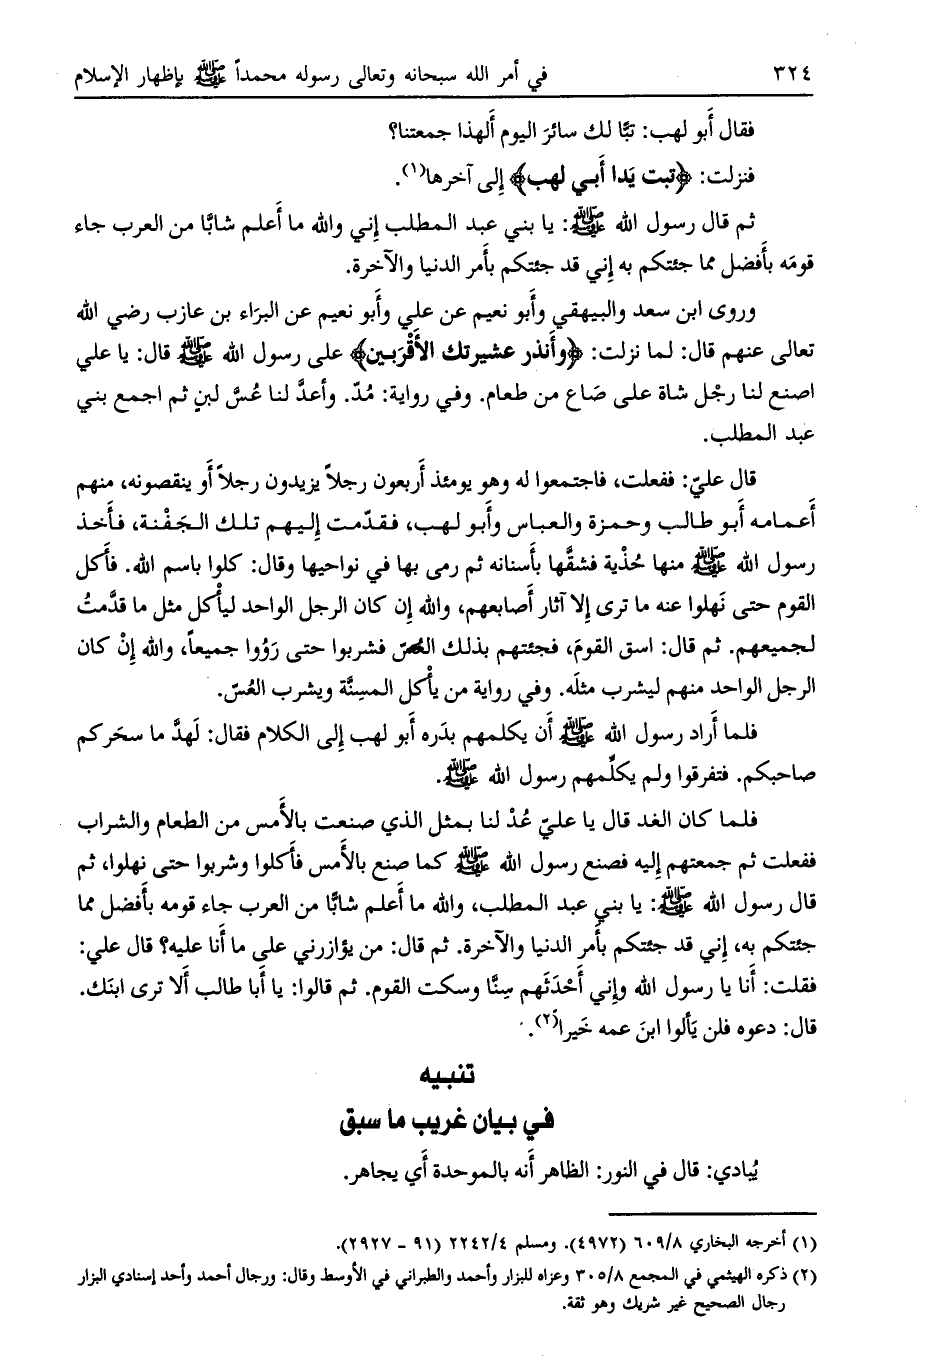 ٣٢٤ في أمر الله سبحانه وتعالى رسوله محمداً ﷺ بإظهار الإسلام
فقال أَبو لهب: تبًّا لك سائرَ اليوم أَلهذا جمعتنا؟
فنزلت: ﴿تبت يَدا أَبي لهب﴾ إِلى آخرها(١).
ثم قال رسول الله ﷺ: يا بني عبد المطلب إِني والله ما أَعلم شابًّا من العرب جاء
قومَه بأَفضل مما جئتكم به إِني قد جئتكم بأَمر الدنيا والآخرة.
وروى ابن سعد والبيهقي وأَبو نعيم عن علي وأَبو نعيم عن البرَاء بن عازب رضي الله
تعالى عنهم قال: لما نزلت: ﴿وأَنذر عشيرتك الأَقْرَبين﴾ على رسول الله ﷺ قال: يا علي
اصنع لنا رجْل شاة على صَاع من طعام. وفي رواية: مُدّ. وأعدَّ لنا عُسَّ لبنٍ ثم اجمع بني
عبد المطلب.
قال عليّ: ففعلت، فاجتمعوا له وهو يومئذ أَربعون رجلاً يزيدون رجلاً أَو ينقصونه، منهم
أَعمامه أَبو طالب وحمزة والعباس وأَبو لهب، فقدّمت إِليهم تلك الجَفْنة، فأَخذ
رسول الله ﷺ منها حُذْية فشقَّها بأَسنانه ثم رمى بها في نواحيها وقال: كلوا باسم الله. فأَكل
القوم حتى نَهلوا عنه ما ترى إِلا آثار أَصابعهم، والله إِن كان الرجل الواحد ليأْكل مثل ما قدَّمتُ
لجميعهم. ثم قال: اسق القومَ، فجئتهم بذلك العُسّ فشربوا حتى رَوُوا جميعاً، والله إِنْ كان
الرجل الواحد منهم ليشرب مثلَه. وفي رواية من يأْكل المسِنَّة ويشرب العُسّ.
فلما أَراد رسول الله ﷺ أَن يكلمهم بدَره أَبو لهب إِلى الكلام فقال: لَهدَّ ما سحَركم
صاحبكم. فتفرقوا ولم يكلّمهم رسول الله ﷺ.
فلما كان الغد قال يا عليّ عُدْ لنا بمثل الذي صنعت بالأَمس من الطعام والشراب
ففعلت ثم جمعتهم إِليه فصنع رسول الله ﷺ كما صنع بالأَمس فأَكلوا وشربوا حتى نهلوا، ثم
قال رسول الله ﷺ: يا بني عبد المطلب، والله ما أَعلم شابًّا من العرب جاء قومه بأَفضل مما
جئتكم به، إِني قد جئتكم بأَمر الدنيا والآخرة. ثم قال: من يؤازرني على ما أَنا عليه؟ قال علي:
فقلت: أَنا يا رسول الله وإِني أَحْدَثَهم سِنًّا وسكت القوم. ثم قالوا: يا أَبا طالب أَلا ترى ابنَك.
قال: دعوه فلن يَألوا ابنَ عمه خَيرا(٢).
تنبيه
في بيان غريب ما سبق
يُبادي: قال في النور: الظاهر أَنه بالموحدة أَي يجاهر.
(١) أخرجه البخاري ٦٠٩/٨ (٤٩٧٢). ومسلم ٢٢٤٢/٤ (٩١ - ٢٩٢٧).
(٢) ذكره الهيثمي في المجمع ٣٠٥/٨ وعزاه للبزار وأحمد والطبراني في الأوسط وقال: ورجال أحمد وأحد إسنادي البزار
رجال الصحيح غير شريك وهو ثقة.